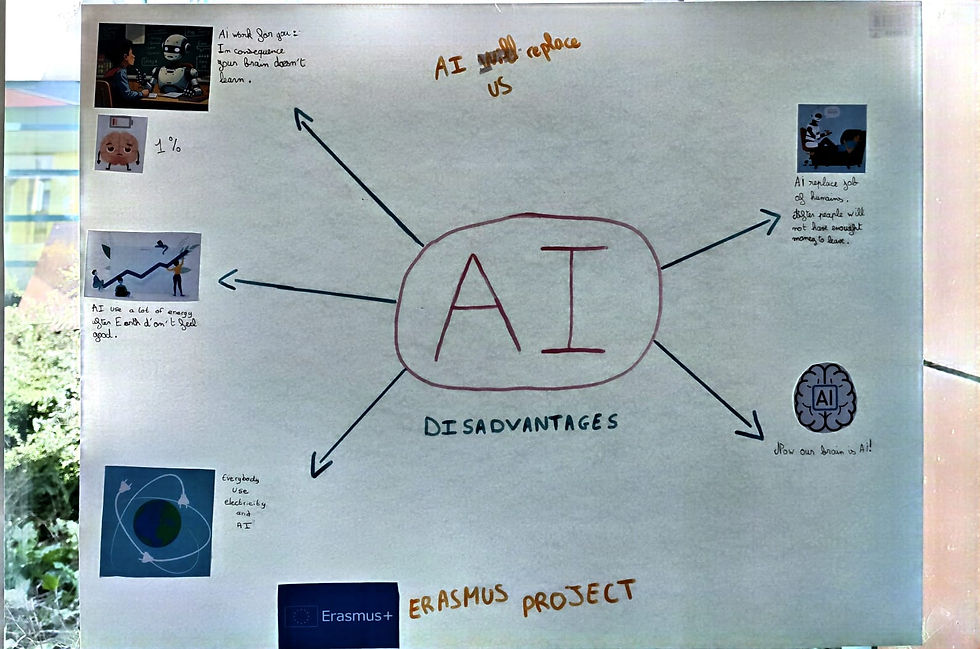 AI work for you :
In consequence
your brain doesn't
learn.
1 %
AI replace
us
AI replace job
of humans.
After people will
not have enought
money to leave.
AI
AI use a lot of energy
after Earth d'on't feel
good.
DISADVANTAGES
AI
Now our brain is AI!
Everybody
use
electricity
and
AI
Erasmus+
ERASMUS PROJECT